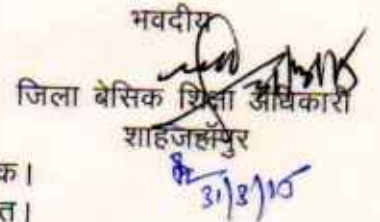 भवदीय
जिला बेसिक शिक्षा अधिकारी
शाहजहॉपुर
क।
त।
31/3/15